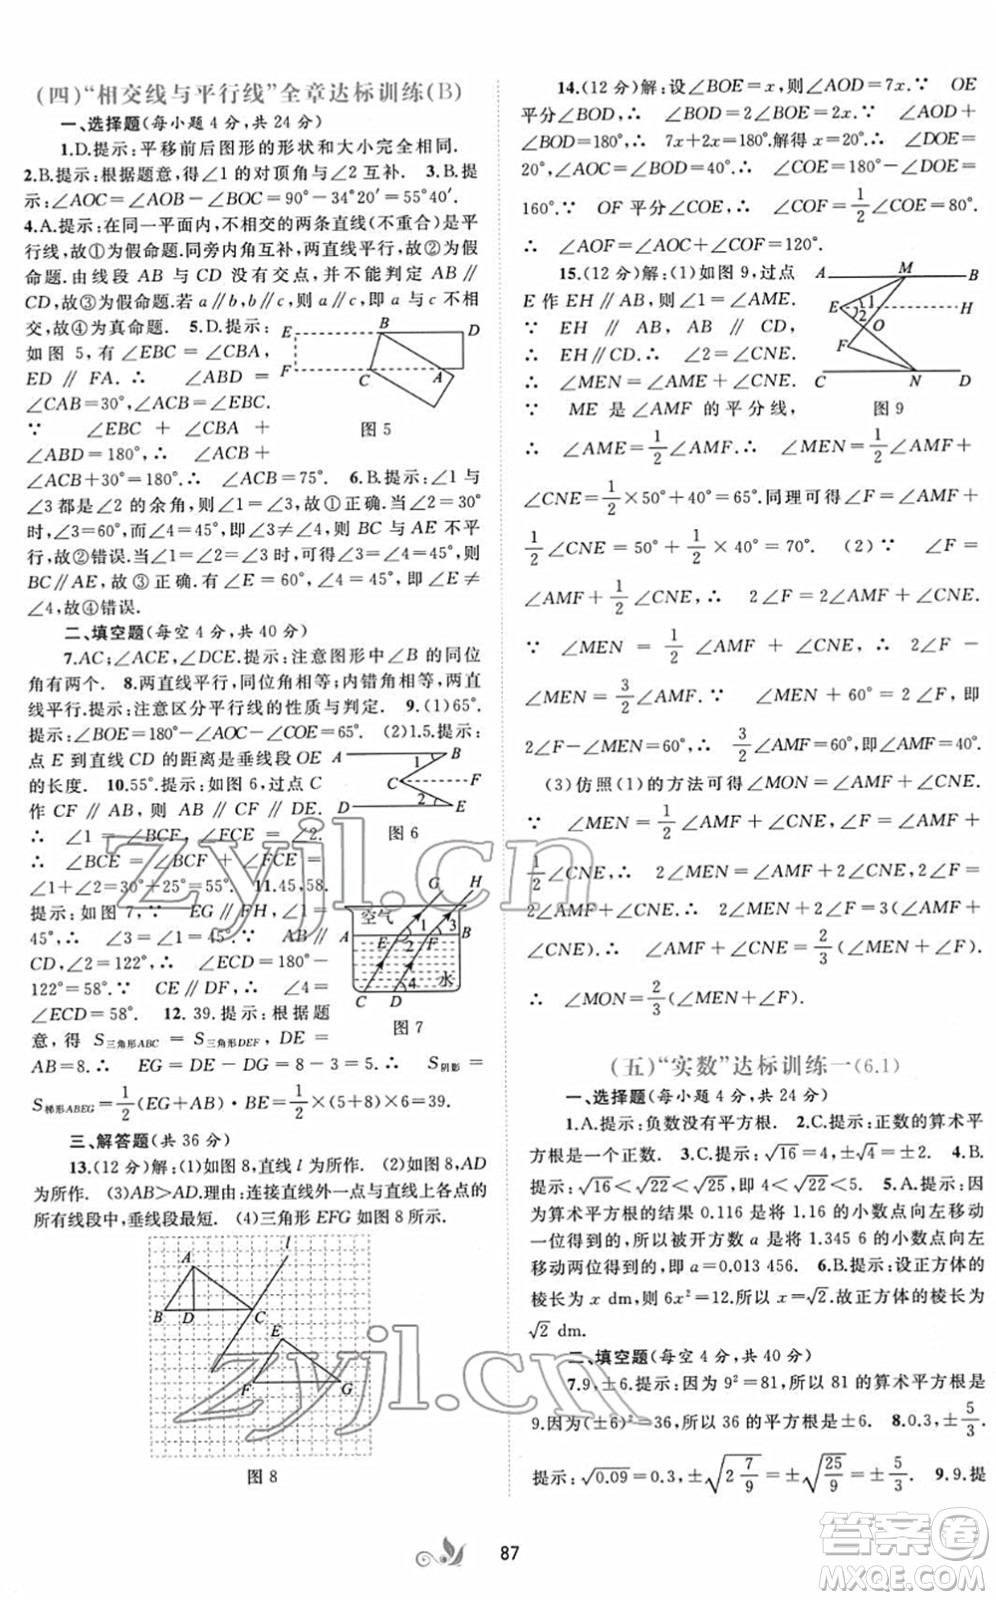 (四)“相交线与平行线”全章达标训练(B)
一、选择题(每小题4分,共24分)
1.D.提示:平移前后图形的形状和大小完全相同.
2.B.提示:根据题意,得∠1的对顶角与∠2互补. 3.B.提
示:∠AOC=∠AOB-∠BOC=90°-34°20′=55°40′.
4.A.提示:在同一平面内,不相交的两条直线(不重合)是平
行线,故①为假命题.同旁内角互补,两直线平行,故②为假
命题.由线段AB与CD没有交点,并不能判定AB∥
CD,故③为假命题.若a∥b,b∥c,则a∥c,即a与c不相
交,故④为真命题. 5.D.提示:
如图5,有∠EBC=∠CBA,
ED∥FA.∴ ∠ABD=
∠CAB=30°,∠ACB=∠EBC.
∵ ∠EBC+∠CBA+
∠ABD=180°,∴ ∠ACB+
∠ACB+30°=180°.∴ ∠ACB=75°. 6.B.提示:∠1与
E B D F C A
图5
∠3都是∠2的余角,则∠1=∠3,故①正确.当∠2=30°
时,∠3=60°,而∠4=45°,即∠3≠∠4,则BC与AE不平
行,故②错误.当∠1=∠2=∠3时,有∠3=∠4=45°,则
BC∥AE,故③正确.有∠E=60°,∠4=45°,即∠E≠
∠4,故④错误.
二、填空题(每空4分,共40分)
7.AC;∠ACE,∠DCE.提示:注意图形中∠B的同位
角有两个. 8.两直线平行,同位角相等;内错角相等,两直
线平行.提示:注意区分平行线的性质与判定. 9.(1)65°.
提示:∠BOE=180°-∠AOC-∠COE=65°. (2)1.5.提示:
点E到直线CD的距离是垂线段OE
的长度. 10.55°.提示:如图6,过点C
作CF∥AB,则CF∥AB∥DE.
∴ ∠1=∠BCF,∠FCE=∠2.
∴ ∠BCE=∠BCF+∠FCE=
∠1+∠2=30°+25°=55°. 11.45,58.
A B 1 C F 2 D E
图6
提示:如图7,∵ EG∥FH,∠1=
45°,∴ ∠3=∠1=45°.∵ AB∥
CD,∠2=122°,∴ ∠ECD=180°-
122°=58°.∵ CE∥DF,∴ ∠4=
∠ECD=58°. 12.39.提示:根据题
G H 空气 1 3 A E 2 F B 4 水 C D
图7
意,得S三角形ABC=S三角形DEF,DE=
AB=8.∴ EG=DE-DG=8-3=5.∴ S阴影=
S梯形ABEG=1/2(EG+AB)·BE=1/2×(5+8)×6=39.
三、解答题(共36分)
13.(12分)解:(1)如图8,直线l为所作. (2)如图8,AD
为所作. (3)AB>AD.理由:连接直线外一点与直线上各点的
所有线段中,垂线段最短. (4)三角形EFG如图8所示.
l A B D C E F G
图8
14.(12分)解:设∠BOE=x,则∠AOD=7x.∵ OE
平分∠BOD,∴ ∠BOD=2∠BOE=2x.∵ ∠AOD+
∠BOD=180°,∴ 7x+2x=180°.解得x=20°.∴ ∠DOE=
20°,∠AOC=∠BOD=40°.∴ ∠COE=180°-∠DOE=
160°.∵ OF平分∠COE,∴ ∠COF=1/2∠COE=80°.
∴ ∠AOF=∠AOC+∠COF=120°.
15.(12分)解:(1)如图9,过点
E作EH∥AB,则∠1=∠AME.
∵ EH∥AB,AB∥CD,∴
EH∥CD.∴ ∠2=∠CNE.
∴ ∠MEN=∠AME+∠CNE.
∵ ME是∠AMF的平分线,
A M B E 1 2 H O F C N D
图9
∴ ∠AME=1/2∠AMF.∴ ∠MEN=1/2∠AMF+
∠CNE=1/2×50°+40°=65°.同理可得∠F=∠AMF+
1/2∠CNE=50°+1/2×40°=70°. (2)∵ ∠F=
∠AMF+1/2∠CNE,∴ 2∠F=2∠AMF+∠CNE.
∵ ∠MEN=1/2∠AMF+∠CNE,∴ 2∠F-
∠MEN=3/2∠AMF.∵ ∠MEN+60°=2∠F,即
2∠F-∠MEN=60°,∴ 3/2∠AMF=60°.∴ ∠AMF=40°.
(3)仿照(1)的方法可得∠MON=∠AMF+∠CNE.
∵ ∠MEN=1/2∠AMF+∠CNE,∠F=∠AMF+
1/2∠CNE,∴ 2∠MEN=∠AMF+2∠CNE,2∠F=
2∠AMF+∠CNE.∴ 2∠MEN+2∠F=3(∠AMF+
∠CNE).∴ ∠AMF+∠CNE=2/3(∠MEN+∠F).
∴ ∠MON=2/3(∠MEN+∠F).
(五)“实数”达标训练一(6.1)
一、选择题(每小题4分,共24分)
1.A.提示:负数没有平方根. 2.C.提示:正数的算术平
方根是正数. 3.C.提示:√16=4,±√4=±2. 4.B.
提示:√16<√22<√25,所以4<√22<5. 5.A.提示:因
为算术平方根的结果0.116是1.16的小数点向左移动一
位得到的,故被开方数a是1.345 6的小数点向左
移动两位得到的,则a=0.013 456. 6.B.提示:设正方体的
棱长为x dm,则6x²=12.故x=√2.故正方体的棱长为
√2 dm.
二、填空题(每空4分,共40分)
7.9,±6.提示:因为9²=81,所以81的算术平方根是
9.因为(±6)²=36,所以36的平方根是±6. 8.0.3,±5/3.
提示:√0.09=0.3,±√(2 7/9)=±√(25/9)=±5/3. 9.9.提
87
zyjl.cn
zyjl.cn
答案圈
MXQE.COM